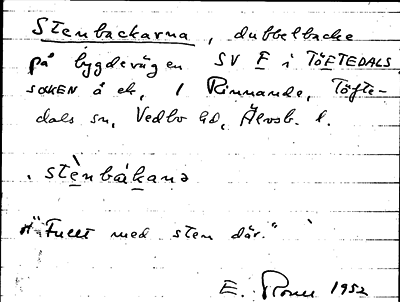 Stenbackarna, dubbelbacke
på bygdevägen SV F i TÖFTEDALS
SOCKEN å ek, 1 Rinnande, Töfte-
dals sn, Vedbo hd, Älvsb. l.
stènbákanə
"Fullt med sten där."
E. 1952